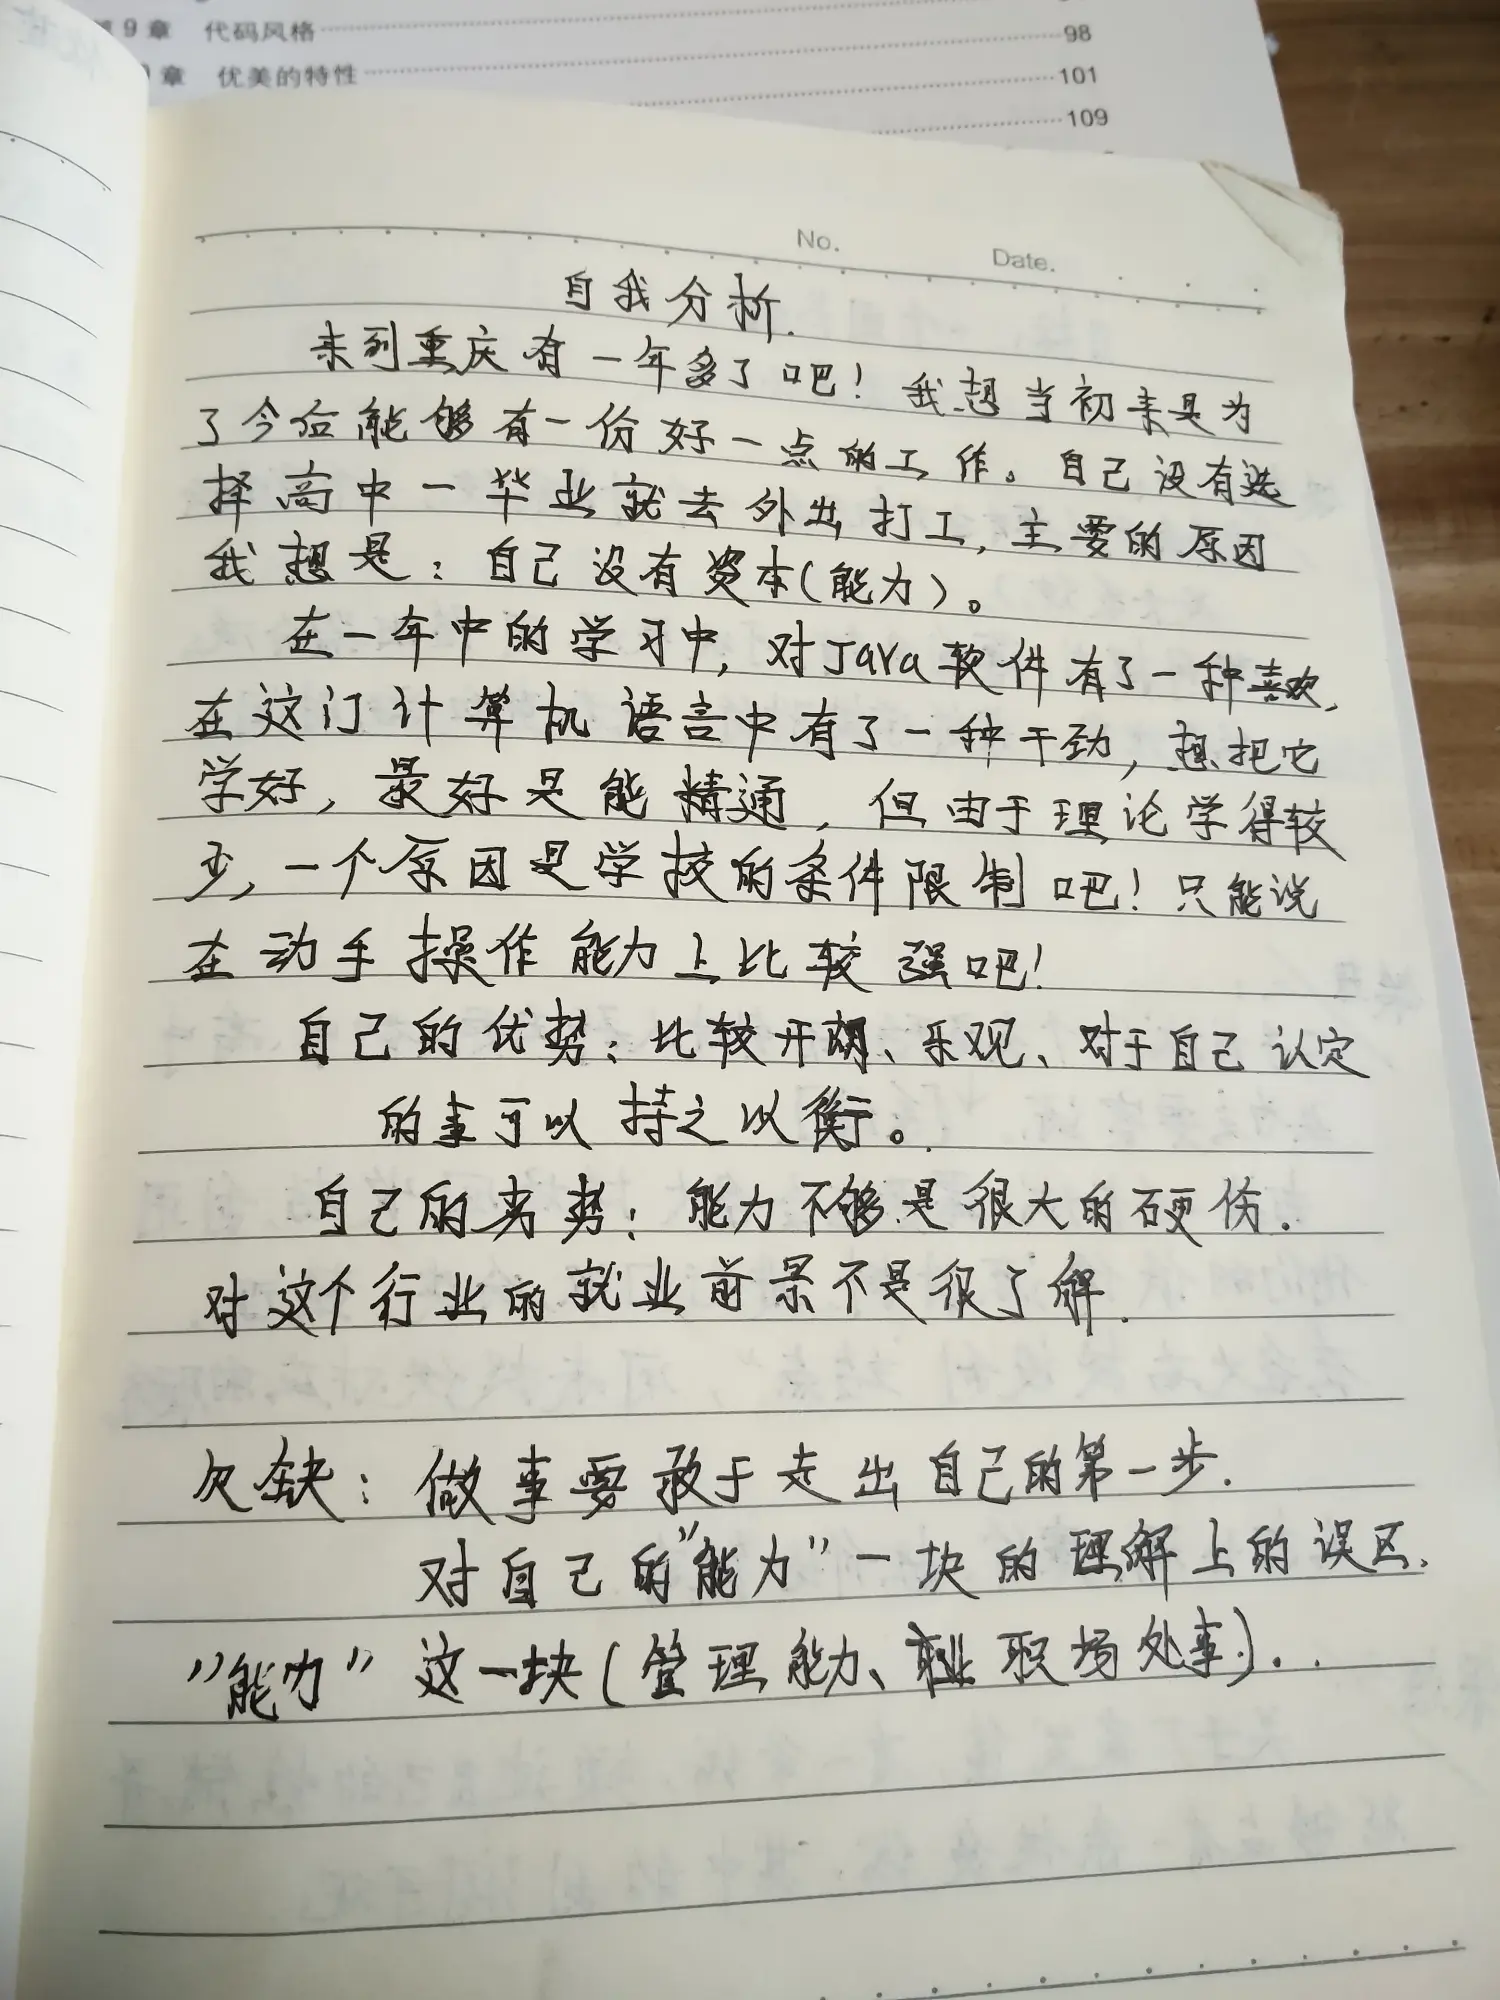 第9章 代码风格 98
章 优美的特性 101
109
No. Date.
自我分析.
来到重庆有一年多了吧！我想当初来是为
了今后能够有一份好一点的工作。自己没有选
择高中一毕业就去外出打工，主要的原因
我想是：自己没有资本(能力)。
在一年中的学习中，对Java软件有了一种喜欢，
在这门计算机语言中有了一种干劲，想把它
学好，最好是能精通，但由于理论学得较
少，一个原因是学校的条件限制吧！只能说
在动手操作能力上比较强吧！
自己的优势：比较开朗、乐观、对于自己认定
的事可以持之以衡。
自己的劣势：能力不够是很大的硬伤.
对这个行业的就业前景不是很了解.
欠缺：做事要敢于走出自己的第一步.
对自己的"能力"一块的理解上的误区.
"能力"这一块(管理能力、职场处事)..